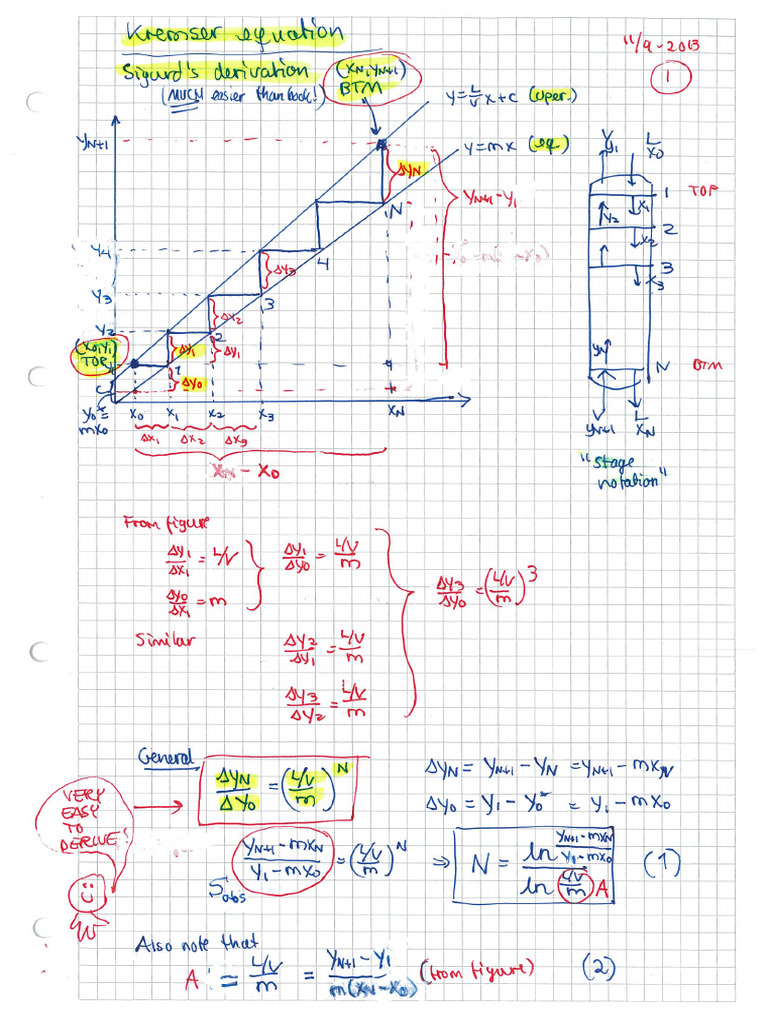 Kremser equation
11/9-2013
Sigurd's derivation
(MUCH easier than book!)
(xN, yN+1)
BTM
1
y = L/V x + c (oper.)
y = mx (eq.)
yN+1
ΔyN
N
yN+1 - y1
y4
4
Δy3
y3
3
Δy2
y2
2
(x0, y1)
TOP
Δy1
Δy1
1
Δy0
c
y0* =
mx0
x0 x1 x2 x3 xN
Δx1 Δx2 Δx3
xN - x0
V L
y1 x0
1 TOP
x1
y2
2
x2
3
x3
yN
N BTM
V L
yN+1 xN
"stage
notation"
From figure
Δy1/Δx1 = L/V
Δy0/Δx1 = m
Δy1/Δy0 = (L/V)/m
Δy3/Δy0 = ((L/V)/m)^3
Similar
Δy2/Δy1 = (L/V)/m
Δy3/Δy2 = (L/V)/m
General
ΔyN/Δy0 = ((L/V)/m)^N
ΔyN = yN+1 - yN = yN+1 - mxN
Δy0 = y1 - y0* = y1 - mx0
VERY
EASY
TO
DERIVE!
(yN+1 - mxN)/(y1 - mx0) = ((L/V)/m)^N ⇒ N = ln((yN+1 - mxN)/(y1 - mx0))/ln((L/V)/m) A (1)
Also note that
A = (L/V)/m = (yN+1 - y1)/(m(xN - x0)) (from figure) (2)